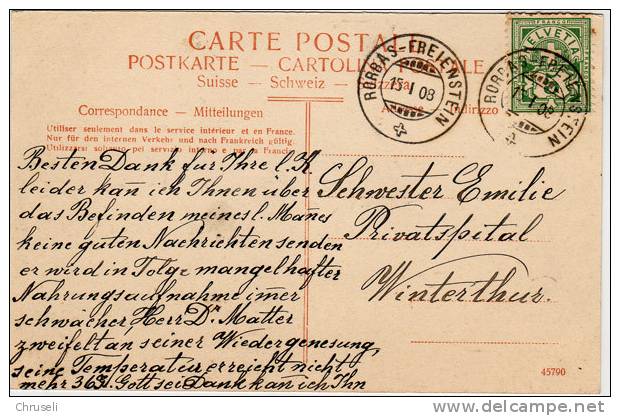 CARTE POSTALE
POSTKARTE — CARTOLINA POSTALE
Suisse — Schweiz — Svizzera
Correspondance — Mitteilungen
Utiliser seulement dans le service intérieur et en France.
Nur für den internen Verkehr und nach Frankreich gültig.
Utilizzare soltanto pel servizio interno e par la Francia.
RORBAS-FREIENSTEIN
15 I 08
HELVETIA
FRANCO
RORBAS-FREIENSTEIN
I 08
Besten Dank für Ihre l. K.
leider kan̄ ich Ihnen über
das Befinden meines l. Man̄es
keine guten Nachrichten senden
er wird in Folge mangelhafter
Nahrungsaufnahme im̄er
schwächer Herr Dr. Matter
zweifelt an seiner Wiedergenesung,
seine Temperatur erreicht nicht
mehr 36 Gott sei Dank kan̄ ich Ihn
Schwester Emilie
Privatspital
Winterthur.
45790
Chruseli
Posted for sale on delcampe.net